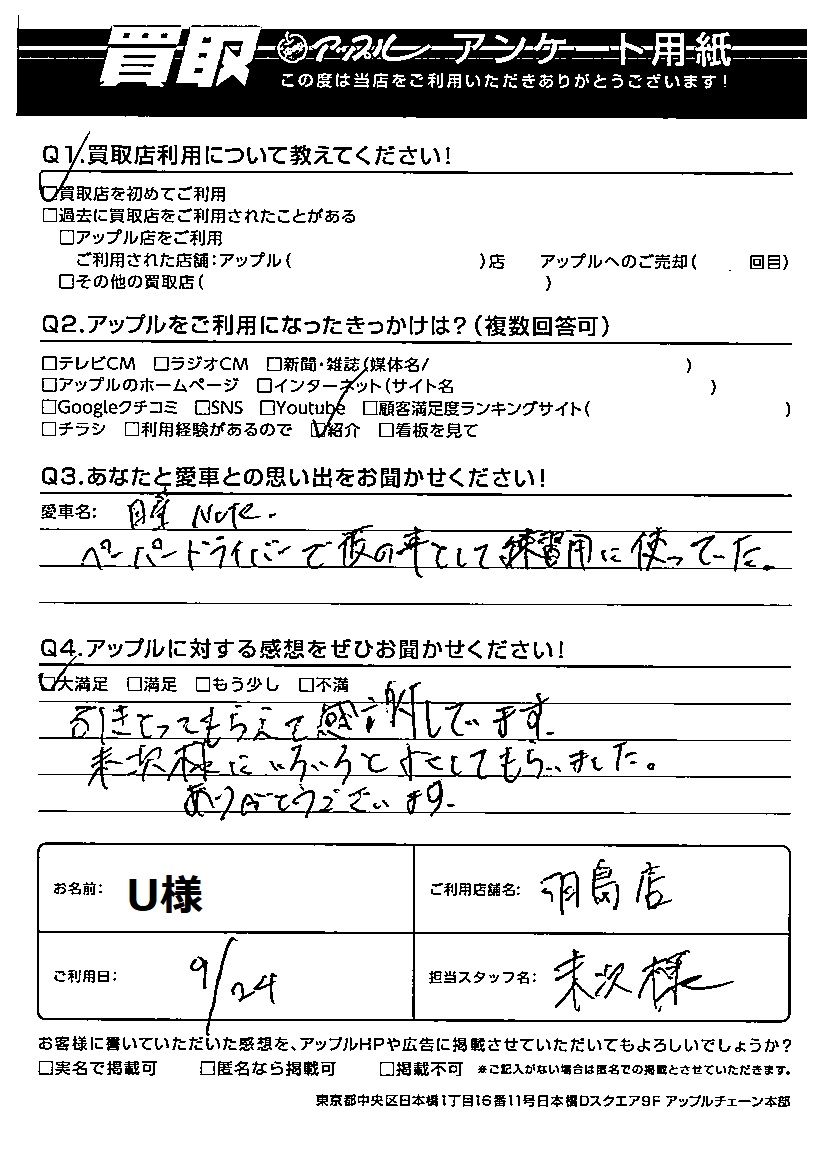 買取 アップル アンケート用紙
この度は当店をご利用いただきありがとうございます!
Q1.買取店利用について教えてください!
□買取店を初めてご利用
□過去に買取店をご利用されたことがある
□アップル店をご利用
ご利用された店舗:アップル( )店 アップルへのご売却( 回目)
□その他の買取店( )
Q2.アップルをご利用になったきっかけは?(複数回答可)
□テレビCM □ラジオCM □新聞・雑誌(媒体名/ )
□アップルのホームページ □インターネット(サイト名 )
□Googleクチコミ □SNS □Youtube □顧客満足度ランキングサイト( )
□チラシ □利用経験があるので □紹介 □看板を見て
Q3.あなたと愛車との思い出をお聞かせください!
愛車名: 日産 Note.
ペーパードライバーで仮の車として練習用に使っていた。
Q4.アップルに対する感想をぜひお聞かせください!
□大満足 □満足 □もう少し □不満
引きとってもらえて感謝しています。
来次様にいろいろとよくしてもらいました。
ありがとうございます。
お名前: U様 ご利用店舗名: 羽島店
ご利用日: 9/24 担当スタッフ名: 来次様
お客様に書いていただいた感想を、アップルHPや広告に掲載させていただいてもよろしいでしょうか?
□実名で掲載可 □匿名なら掲載可 □掲載不可 ※ご記入がない場合は匿名での掲載とさせていただきます。
東京都中央区日本橋1丁目16番11号日本橋Dスクエア9F アップルチェーン本部